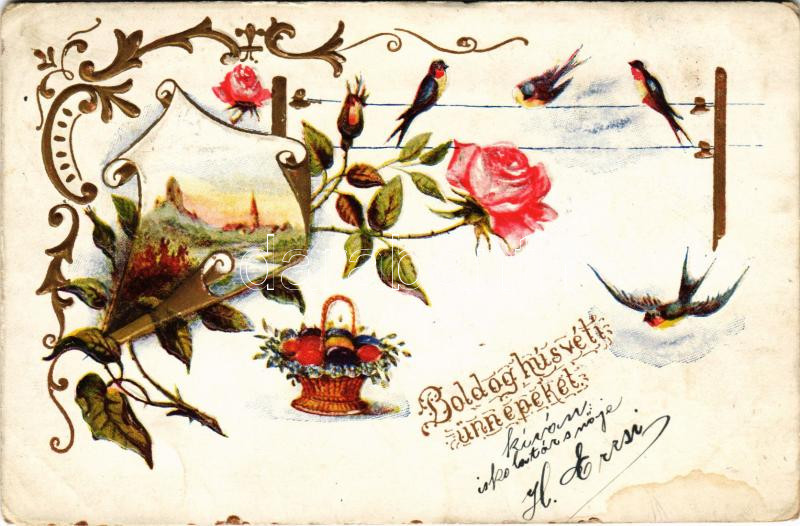 Boldog húsvéti
ünnepeket.
kíván
iskolatársnője
H. Erzsi